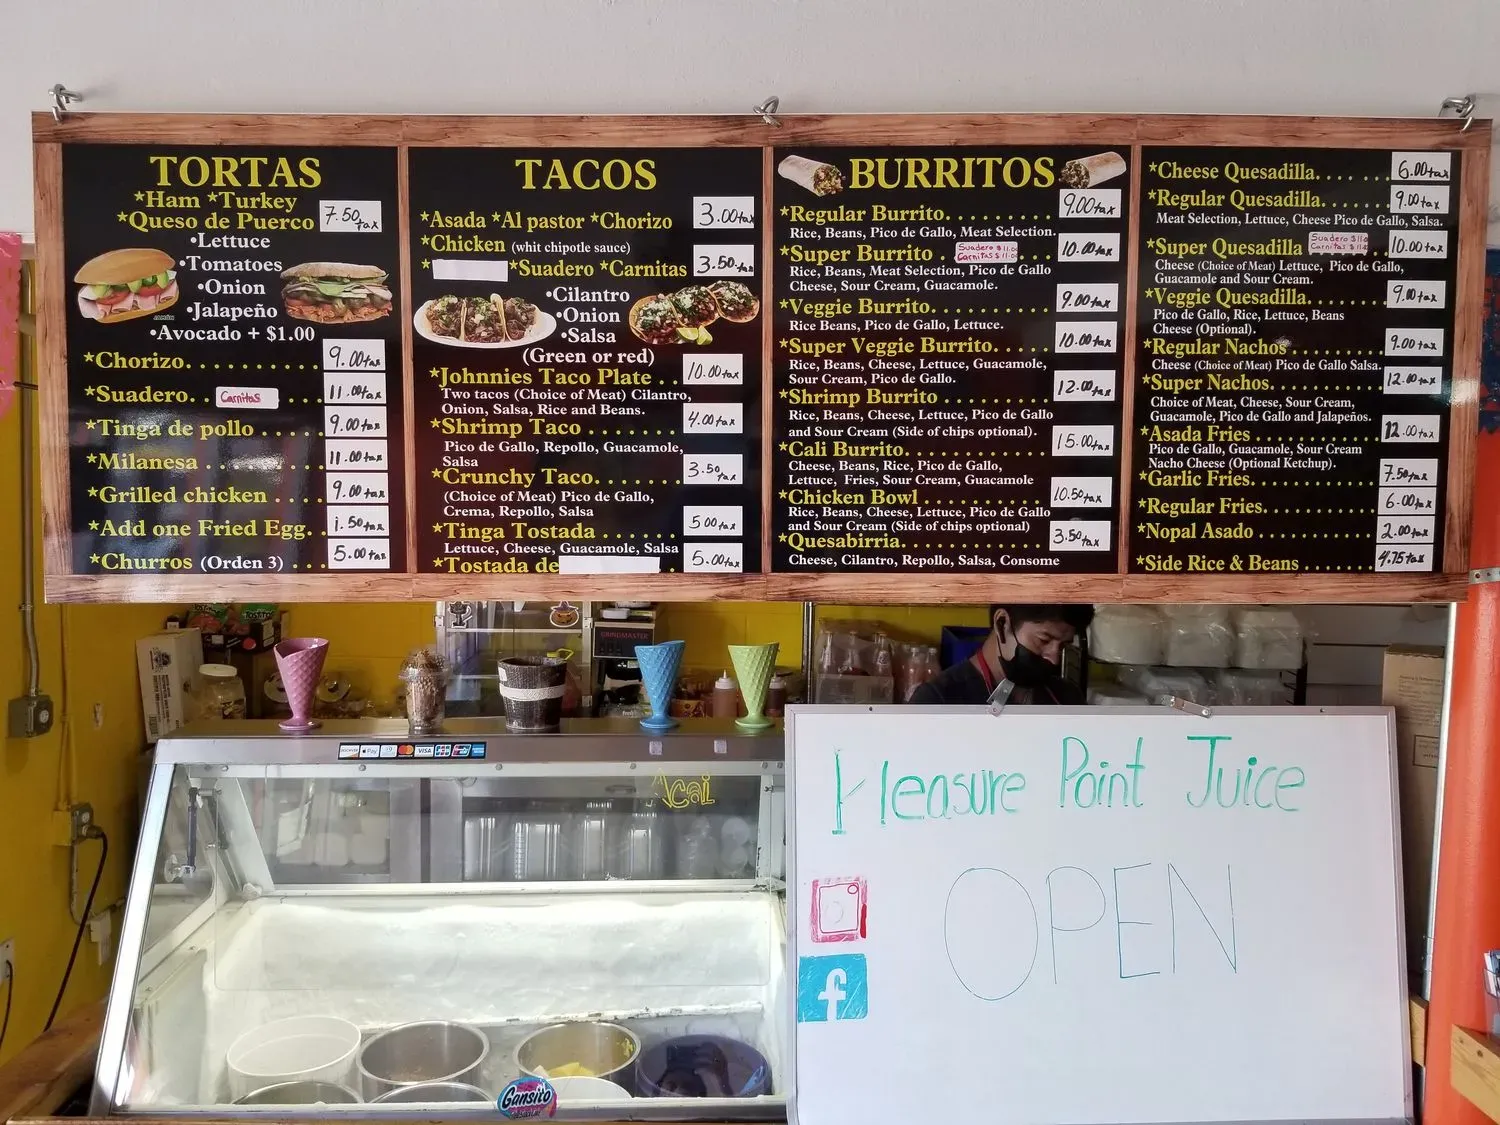 TORTAS
*Ham *Turkey
*Queso de Puerco 7.50+tax
•Lettuce
•Tomatoes
•Onion
•Jalapeño
•Avocado + $1.00
*Chorizo. . . . . . . . . . . . 9.00+tax
*Suadero. . Carnitas . . . 11.00+tax
*Tinga de pollo . . . . . 9.00+tax
*Milanesa . . . . . . . . . . 11.00+tax
*Grilled chicken . . . . 9.00+tax
*Add one Fried Egg. . 1.50+tax
*Churros (Orden 3) . . 5.00+tax
TACOS
*Asada *Al pastor *Chorizo 3.00+tax
*Chicken (whit chipotle sauce)
* *Suadero *Carnitas 3.50+tax
•Cilantro
•Onion
•Salsa
(Green or red)
*Johnnies Taco Plate . . 10.00+tax
Two tacos (Choice of Meat) Cilantro,
Onion, Salsa, Rice and Beans.
*Shrimp Taco . . . . . . . 4.00+tax
Pico de Gallo, Repollo, Guacamole,
Salsa
*Crunchy Taco. . . . . . . 3.50+tax
(Choice of Meat) Pico de Gallo,
Crema, Repollo, Salsa
*Tinga Tostada . . . . . . 5.00+tax
Lettuce, Cheese, Guacamole, Salsa
*Tostada de 5.00+tax
BURRITOS
*Regular Burrito. . . . . . . . . 9.00+tax
Rice, Beans, Pico de Gallo, Meat Selection.
*Super Burrito . Suadero $11.00 Carnitas $11.00 . . . 10.00+tax
Rice, Beans, Meat Selection, Pico de Gallo
Cheese, Sour Cream, Guacamole.
*Veggie Burrito. . . . . . . . . . 9.00+tax
Rice Beans, Pico de Gallo, Lettuce.
*Super Veggie Burrito. . . . . 10.00+tax
Rice, Beans, Cheese, Lettuce, Guacamole,
Sour Cream, Pico de Gallo.
*Shrimp Burrito . . . . . . . . . 12.00+tax
Rice, Beans, Cheese, Lettuce, Pico de Gallo
and Sour Cream (Side of chips optional).
*Cali Burrito. . . . . . . . . . . . 15.00+tax
Cheese, Beans, Rice, Pico de Gallo,
Lettuce, Fries, Sour Cream, Guacamole
*Chicken Bowl . . . . . . . . . . 10.50+tax
Rice, Beans, Cheese, Lettuce, Pico de Gallo
and Sour Cream (Side of chips optional)
*Quesabirria. . . . . . . . . . . . 3.50+tax
Cheese, Cilantro, Repollo, Salsa, Consome
*Cheese Quesadilla. . . . . . 6.00+tax
*Regular Quesadilla. . . . . 9.00+tax
Meat Selection, Lettuce, Cheese Pico de Gallo, Salsa.
*Super Quesadilla Suadero $11.00 Carnitas $11.00 10.00+tax
Cheese (Choice of Meat) Lettuce, Pico de Gallo,
Guacamole and Sour Cream.
*Veggie Quesadilla. . . . . . 9.00+tax
Pico de Gallo, Rice, Lettuce, Beans
Cheese (Optional).
*Regular Nachos . . . . . . . 9.00+tax
Cheese (Choice of Meat) Pico de Gallo Salsa.
*Super Nachos. . . . . . . . . 12.00+tax
Choice of Meat, Cheese, Sour Cream,
Guacamole, Pico de Gallo and Jalapeños.
*Asada Fries . . . . . . . . . . 12.00+tax
Pico de Gallo, Guacamole, Sour Cream
Nacho Cheese (Optional Ketchup).
*Garlic Fries. . . . . . . . . . . 7.50+tax
*Regular Fries. . . . . . . . . . 6.00+tax
*Nopal Asado . . . . . . . . . . 2.00+tax
*Side Rice & Beans . . . . . . 4.75+tax
GRINDMASTER
DISCOVER Pay VISA
Acai
Pleasure Point Juice
OPEN
f
Gansito